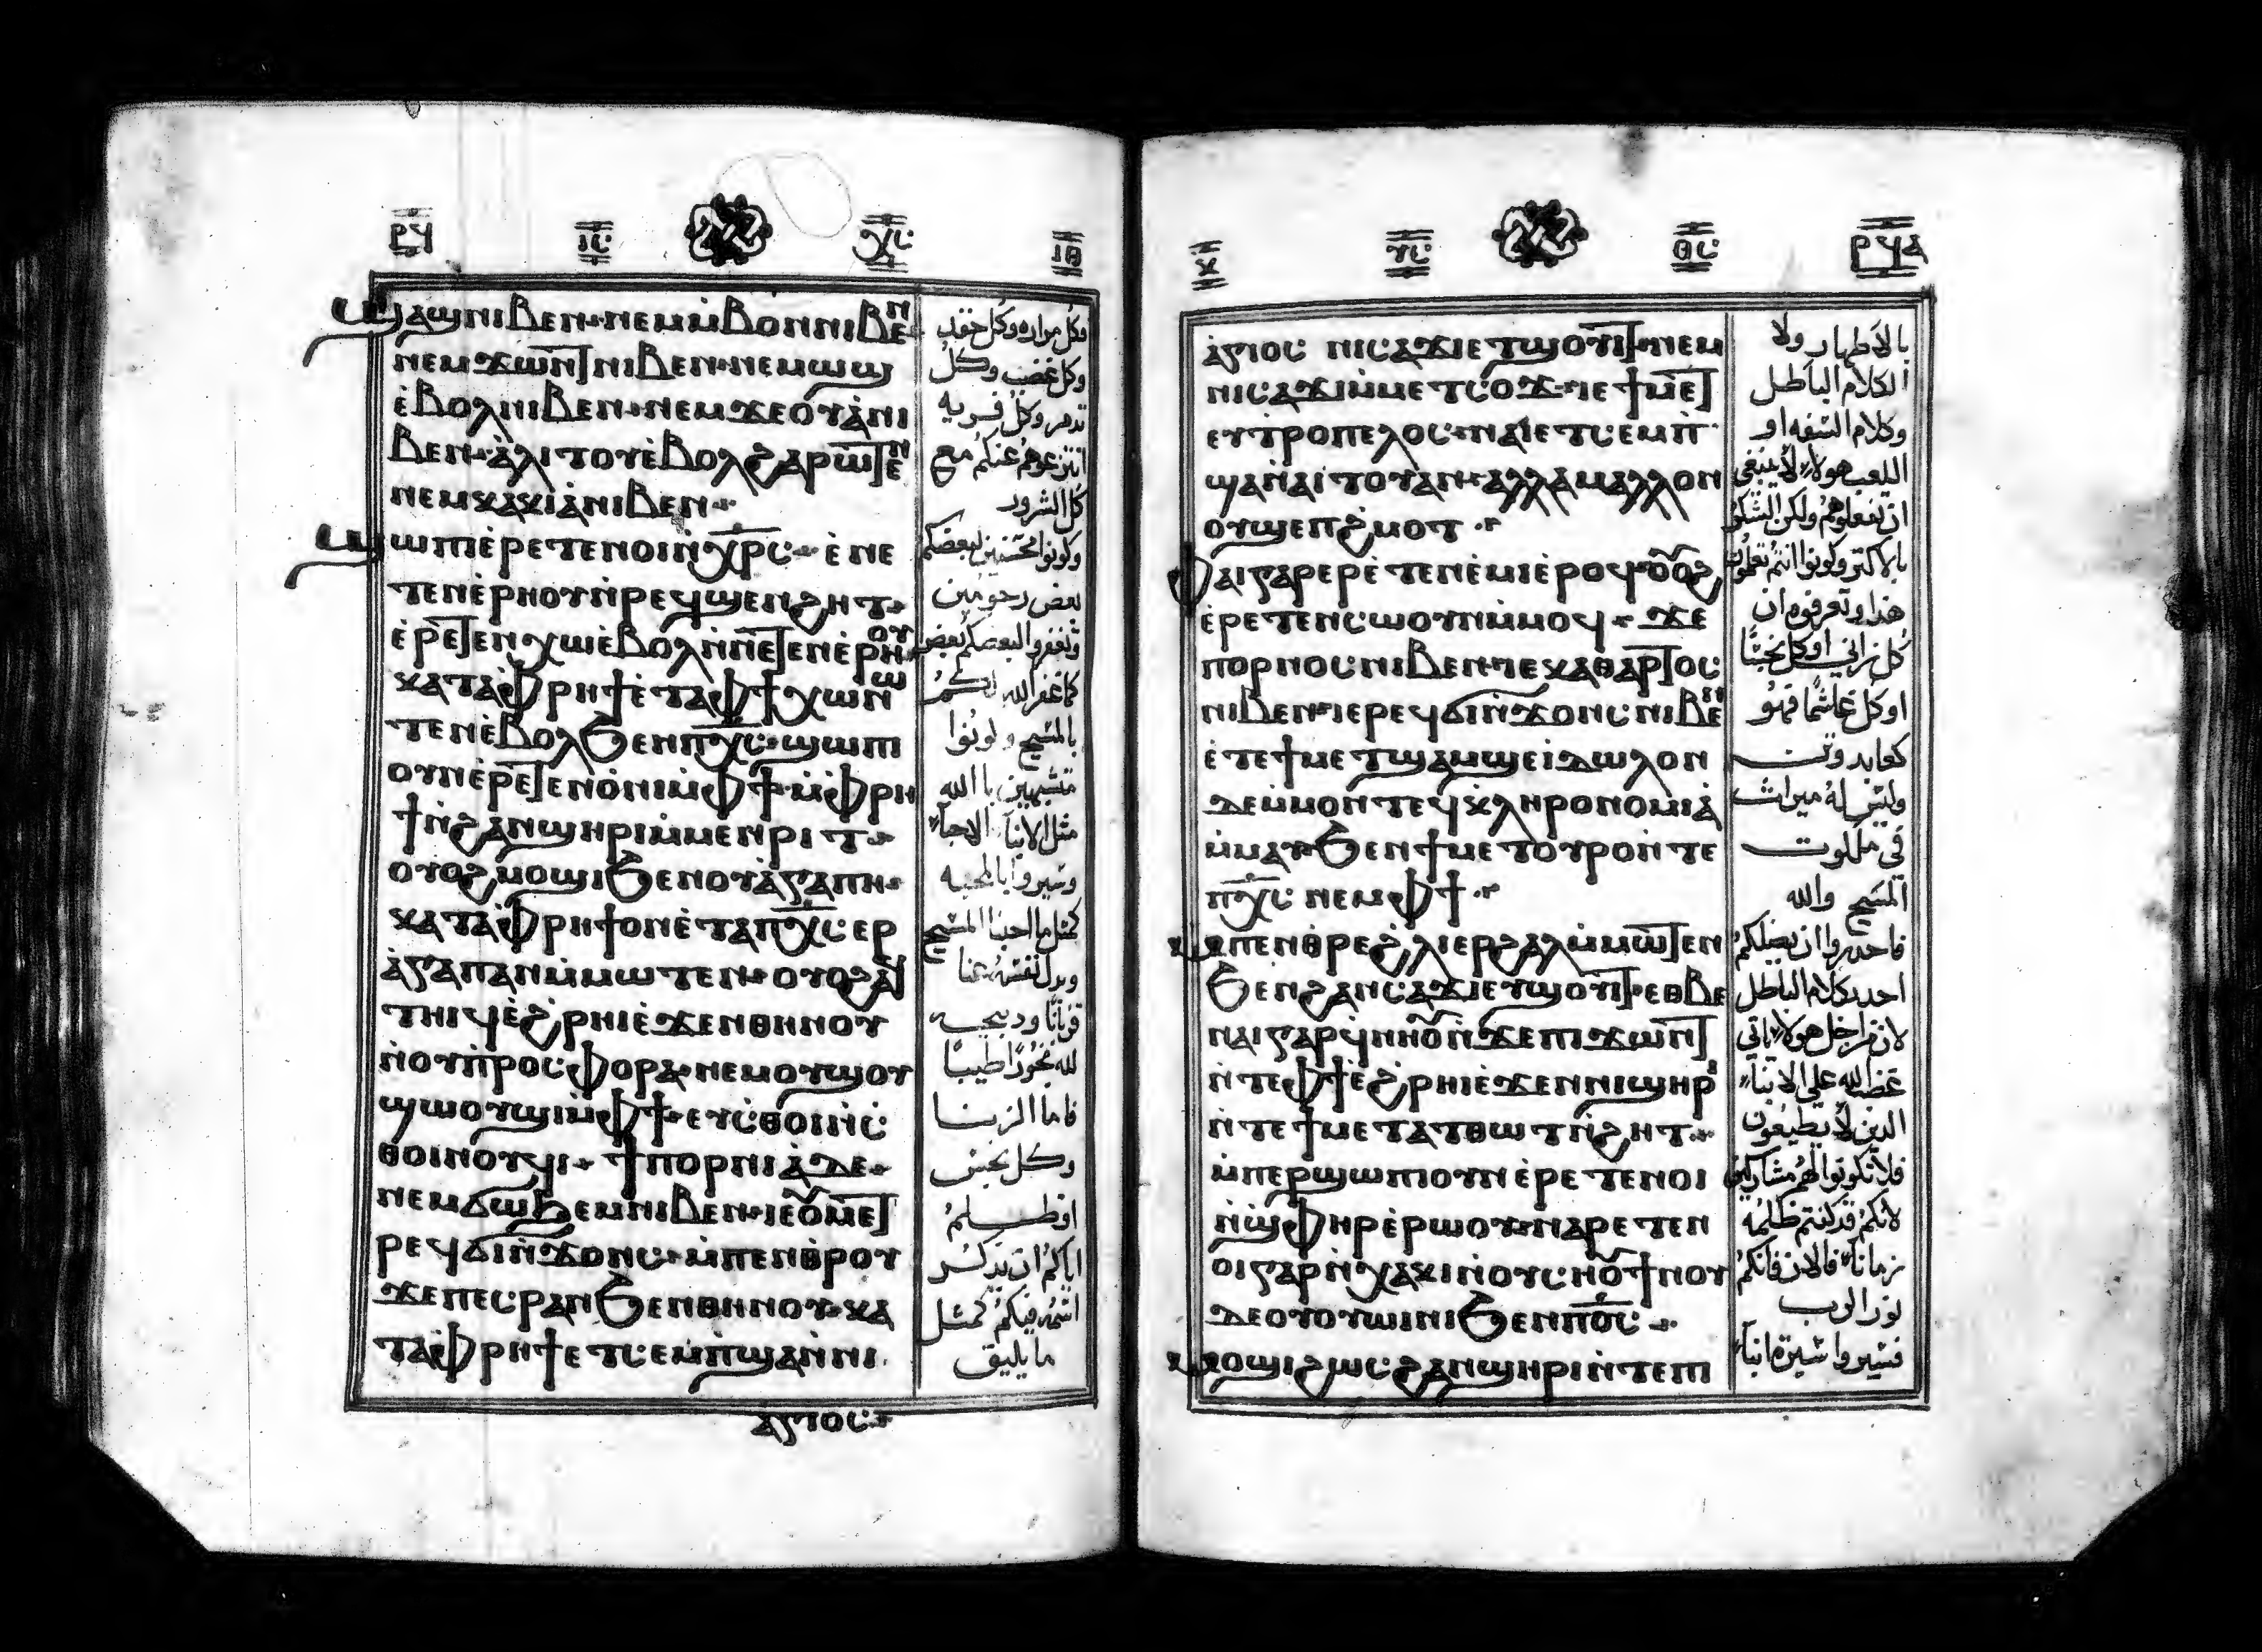 ⲣϥ ⲓⲥ ⲭⲥ ⲓⲑ
ϣⲁϣⲓ ⲛⲓⲃⲉⲛ ⲛⲉⲙ ⲙ̀ⲃⲟⲛ ⲛⲓⲃⲉⲛ
ⲛⲉⲙ ϫⲱⲛⲧ ⲛⲓⲃⲉⲛ ⲛⲉⲙ ⲱϣ
ⲉ̀ⲃⲟⲗ ⲛⲓⲃⲉⲛ ⲛⲉⲙ ϫⲉⲟⲩⲁ̀ ⲛⲓ
ⲃⲉⲛ ⲁ̀ⲗⲓⲧⲟⲩ ⲉ̀ⲃⲟⲗ ϩⲁⲣⲱⲧⲉⲛ
ⲛⲉⲙ ⲕⲁⲕⲓⲁ̀ ⲛⲓⲃⲉⲛ
ϣⲱⲡⲓ ⲉ̀ⲣⲉⲧⲉⲛⲟⲓ ⲛ̀ⲭⲣⲥ ⲉ̀ⲛⲉ
ⲧⲉⲛⲉ̀ⲣⲏⲟⲩ ⲛ̀ⲣⲉϥϣⲉⲛϩⲏⲧ
ⲉ̀ⲣⲉⲧⲉⲛⲭⲱ ⲉ̀ⲃⲟⲗ ⲛ̀ⲛⲉⲧⲉⲛⲉ̀ⲣⲏⲟⲩ
ⲕⲁⲧⲁ ⲫⲣⲏϯ ⲉ̀ⲧⲁ ⲫϯ ⲭⲱ ⲛⲱ
ⲧⲉⲛ ⲉ̀ⲃⲟⲗ ϧⲉⲛ ⲡⲭⲥ ϣⲱⲡⲓ
ⲟⲩⲛ ⲉ̀ⲣⲉⲧⲉⲛⲟ̀ⲛⲓ ⲙ̀ⲫϯ ⲙ̀ⲫⲣⲏ
ϯ ⲛ̀ϩⲁⲛϣⲏⲣⲓ ⲙ̀ⲙⲉⲛⲣⲓⲧ
ⲟⲩⲟϩ ⲙⲟϣⲓ ϧⲉⲛ ⲟⲩⲁ̀ⲅⲁⲡⲏ
ⲕⲁⲧⲁ ⲫⲣⲏϯ ⲟⲛ ⲉ̀ⲧⲁ ⲡⲭⲥ ⲉⲣ
ⲁ̀ⲅⲁⲡⲁⲛ ⲙ̀ⲙⲱⲧⲉⲛ ⲟⲩⲟϩ ⲁϥ
ⲧⲏⲓϥ ⲉ̀ϩⲣⲏⲓ ⲉ̀ϫⲉⲛ ⲑⲏⲛⲟⲩ
ⲛ̀ⲟⲩⲡ̀ⲣⲟⲥⲫⲟⲣⲁ ⲛⲉⲙ ⲟⲩϣⲟⲩ
ϣⲱⲟⲩϣⲓ ⲙ̀ⲫϯ ⲉⲩⲥ̀ⲑⲟⲓ ⲛ̀ⲥ̀
ⲑⲟⲓⲛⲟⲩϥⲓ ϯⲡⲟⲣⲛⲓⲁ̀ ⲇⲉ
ⲛⲉⲙ ϭⲱϧⲉⲙ ⲛⲓⲃⲉⲛ ⲓⲉ ⲟⲩⲙⲉⲧ
ⲣⲉϥϭⲓⲛ̀ϫⲟⲛⲥ ⲙ̀ⲡⲉⲛⲑⲣⲟⲩ
ϫⲉ ⲡⲉⲥⲣⲁⲛ ϧⲉⲛ ⲑⲏⲛⲟⲩ ⲕⲁ
ⲧⲁ ⲫⲣⲏϯ ⲉⲧⲥⲉⲙⲡ̀ϣⲁ ⲛ̀ⲛⲓ
ⲁⲅⲓⲟⲥ
وكل مراره وكل حقد
وكل غضب وكل
تدمر وكل فريه
انتزعوهم عنكم مع
كل الشرور
وكونوا محتنين لبعضكم
بعض رحومين
وتغفروا لبعضكم بعض
كما غفر الله لكم
بالمسيح وكونوا
متشبهين با الله
مثل الابنآ الاحبآ
وسيروا بالمحبه
كمثل ما احبنا المسيح
وبدل نفسه عنا
قربانا ودبيحه
لله بخورا طيبا
فاما الزنا
وكل نجس
اوظلم
اياكم ان يدكر
اسمه فيكم كمثل
ما يليق
ⲕ ⲩⲥ ⲑⲥ ⲣϥⲁ
ⲁ̀ⲅⲓⲟⲥ ⲛⲓⲥⲁϫⲓ ⲉⲧϣⲟⲩⲓⲧ ⲛⲉⲙ
ⲛⲓⲥⲁϫⲓ ⲙ̀ⲙⲉⲧⲥⲟϫ ⲓⲉ ϯⲙⲉⲧ
ⲉⲩⲧⲣⲟⲡⲉⲗⲟⲥ ⲛⲁⲓ ⲉⲧⲥⲉⲙⲡ̀
ϣⲁ ⲛ̀ⲁⲓⲧⲟⲩ ⲁⲛ ⲁⲗⲗⲁ ⲙⲁⲗⲗⲟⲛ
ⲟⲩϣⲉⲡϩ̀ⲙⲟⲧ
ⲫⲁⲓ ⲅⲁⲣ ⲉⲣⲉ̀ⲧⲉⲛⲉ̀ⲙⲓ ⲉ̀ⲣⲟϥ ⲟⲩⲟϩ
ⲉ̀ⲣⲉⲧⲉⲛⲥⲱⲟⲩⲛ ⲙ̀ⲙⲟϥ ϫⲉ
ⲡⲟⲣⲛⲟⲥ ⲛⲓⲃⲉⲛ ⲓⲉ ⲕⲁⲑⲁⲣⲧⲟⲥ
ⲛⲓⲃⲉⲛ ⲓⲉ ⲣⲉϥϭⲓⲛ̀ϫⲟⲛⲥ ⲛⲓⲃⲉⲛ
ⲉ̀ⲧⲉ ϯⲙⲉⲧϣⲁⲙϣⲉ ⲓ̀ⲇⲱⲗⲟⲛ
ⲇⲉ ⲙ̀ⲙⲟⲛⲧⲉϥ ⲕ̀ⲗⲏⲣⲟⲛⲟⲙⲓⲁ̀
ⲙ̀ⲙⲁⲩ ϧⲉⲛ ϯⲙⲉⲧⲟⲩⲣⲟ ⲛ̀ⲧⲉ
ⲡⲭⲥ ⲛⲉⲙ ⲫϯ
ⲙ̀ⲡⲉⲛⲑⲣⲉ ϩ̀ⲗⲓ ⲉⲣϩⲁⲗ ⲙ̀ⲙⲱⲧⲉⲛ
ϧⲉⲛ ϩⲁⲛⲥⲁϫⲓ ⲉⲩϣⲟⲩⲓⲧ ⲉⲑⲃⲉ
ⲛⲁⲓ ⲅⲁⲣ ϥ̀ⲛⲏⲟⲩ ⲛ̀ϫⲉ ⲡⲓϫⲱⲛⲧ
ⲛ̀ⲧⲉ ⲫϯ ⲉ̀ϩⲣⲏⲓ ⲉ̀ϫⲉⲛ ⲛⲓϣⲏⲣⲓ
ⲛ̀ⲧⲉ ϯⲙⲉⲧⲁⲧⲑⲱⲧ ⲛ̀ϩⲏⲧ
ⲙ̀ⲡⲉⲣϣⲱⲡⲓ ⲟⲩⲛ ⲉ̀ⲣⲉⲧⲉⲛⲟⲓ
ⲛ̀ϣ̀ⲫⲏⲣ ⲉ̀ⲣⲱⲟⲩ ⲛⲁⲣⲉⲧⲉⲛ
ⲟⲓ ⲅⲁⲣ ⲛ̀ⲭⲁⲕⲓ ⲛ̀ⲟⲩⲥⲏⲟⲩ ϯⲛⲟⲩ
ⲇⲉ ⲟⲩⲟⲩⲱⲓⲛⲓ ϧⲉⲛ ⲡⲟⲥ
ⲙⲟϣⲓ ϩⲱⲥ ϩⲁⲛϣⲏⲣⲓ ⲛ̀ⲧⲉ ⲡⲓ
بالاطهار ولا
الكلام الباطل
وكلام السفه او
اللعب هولاء لا ينبغي
ان تفعلوهم ولكن الشكر
بالاكتر وكونوا انتم تعلمون
هذا وتعرفوه ان
كل زاني او كل نجسا
او كل غاشما فهو
كعابد وتن
وليس له ميراث
في ملكوت
المسيح والله
فاحدروا ان يضلكم
احد بكلام الباطل
لان من اجل هولاء ياتي
غضب الله على الابناء
الدين لا يطيعون
فلا تكونوا لهم مشاركين
لانكم قد كنتم ظلمه
زمانا فالان فانكم
نور الرب
فسيروا سيرة ابناء